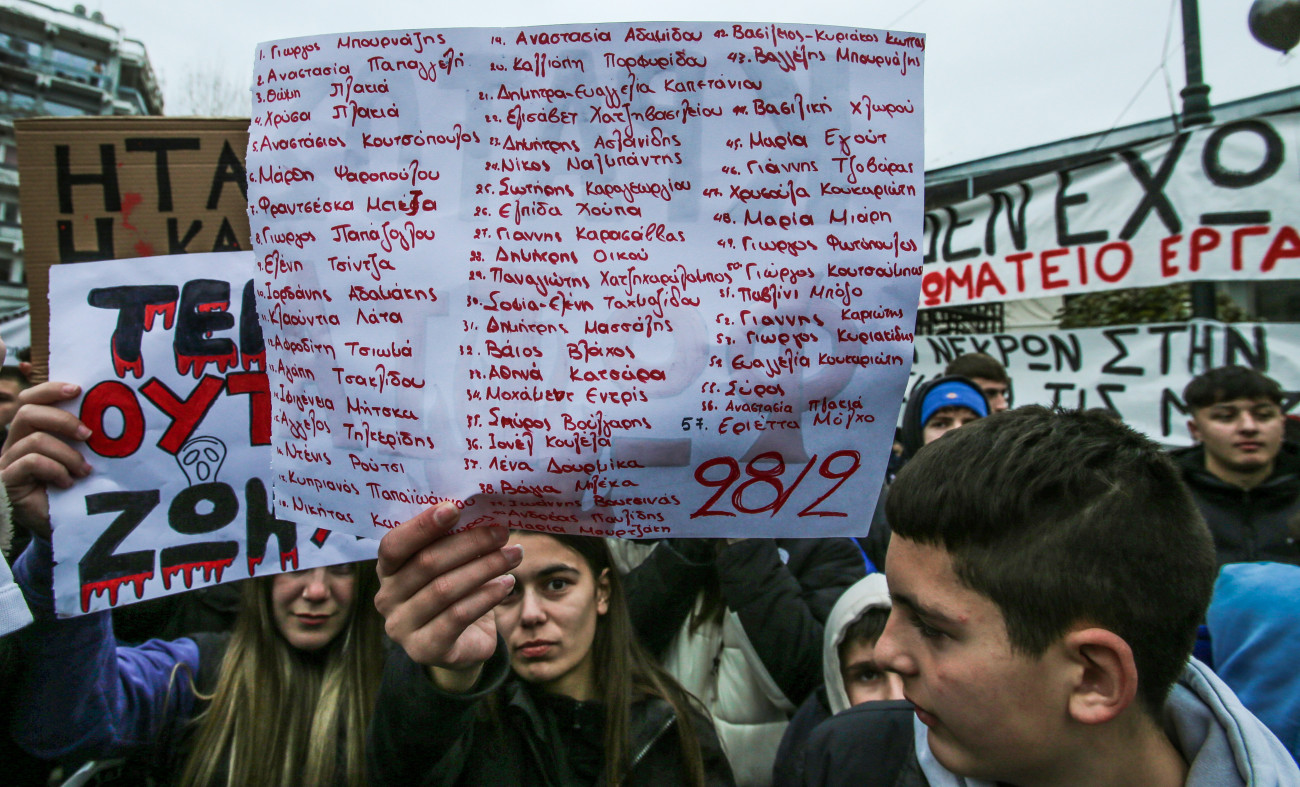 1. Γιώργος Μπουρνάζης
2. Αναστασία Παπαγγελή
3. Θώμη Πλακιά
4. Χρύσα Πλακιά
5. Αναστάσιος Κουτσόπουλος
6. Μάρθη Ψαροπούλου
7. Φραντσέσκα Μπέζα
8. Γιώργος Παπάζογλου
9. Ελένη Τσίντζα
10. Ιορδάνης Αδαμάκης
11. Κλαούντια Λάτα
12. Αφροδίτη Τσιωμά
13. Αγάπη Τσακλίδου
14. Ιφιγένεια Μήτσκα
15. Άγγελος Τηλκερίδης
16. Ντένις Ρούτσι
17. Κυπριανός Παπαϊωάννου
18. Νικήτας
19. Αναστασία Αδαμίδου
20. Καλλιόπη Πορφυρίδου
21. Δήμητρα-Ευαγγελία Καπετάνιου
22. Ελισάβετ Χατζηβασιλείου
23. Δημήτρης Ασλανίδης
24. Νίκος Ναλμπάντης
25. Σωτήρης Καραγεωργίου
26. Ελπίδα Χούπα
27. Γιάννης Καρασάββας
28. Δημήτρης Οικού
29. Παναγιώτης Χατζηχαραλάμπους
30. Σοφία-Ελένη Ταχμαζίδου
31. Δημήτρης Μασσάλης
32. Βάιος Βλάχος
33. Αθηνά Κατσάρα
34. Μοχάμεντ Εντρίς
35. Σπύρος Βούλγαρης
36. Ιονέλ Κουλέλα
37. Λένα Δουρμίκα
38. Βάγια Μπλέκα
Ιωάννης Βουτσινάς
Ανδρέας Παυλίδης
Μαρία Μουρτζάκη
42. Βασίλειος-Κυριάκος Κώττας
43. Βαγγέλης Μπουρνάζης
44. Βασιλική Χλωρού
45. Μαρία Εγούτ
46. Γιάννης Τζοβάρας
47. Χρυσούλα Κουκαριώτη
48. Μαρία Μιάρη
49. Γιώργος Φωτόπουλος
50. Γιώργος Κουτσούμπας
51. Παβλίνι Μπόζο
52. Γιάννης Καριώτης
53. Γιώργος Κυριακίδης
54. Ευαγγελία Κουκαριώτη
55. Σύρος
56. Αναστασία Πλακιά
57. Εριέττα Μόλχο
28/2
Η ΤΑ
Η ΚΑ
ΟΥΤ
ΖΩΗ
ΔΕΝ ΕΧΩ
ΩΜΑΤΕΙΟ ΕΡΓΑ
ΝΕΚΡΩΝ ΣΤΗΝ
ΤΙΣ